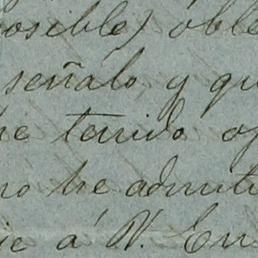 posible) oble
señalo y qu
he tenido o
no he admit
a V. Em